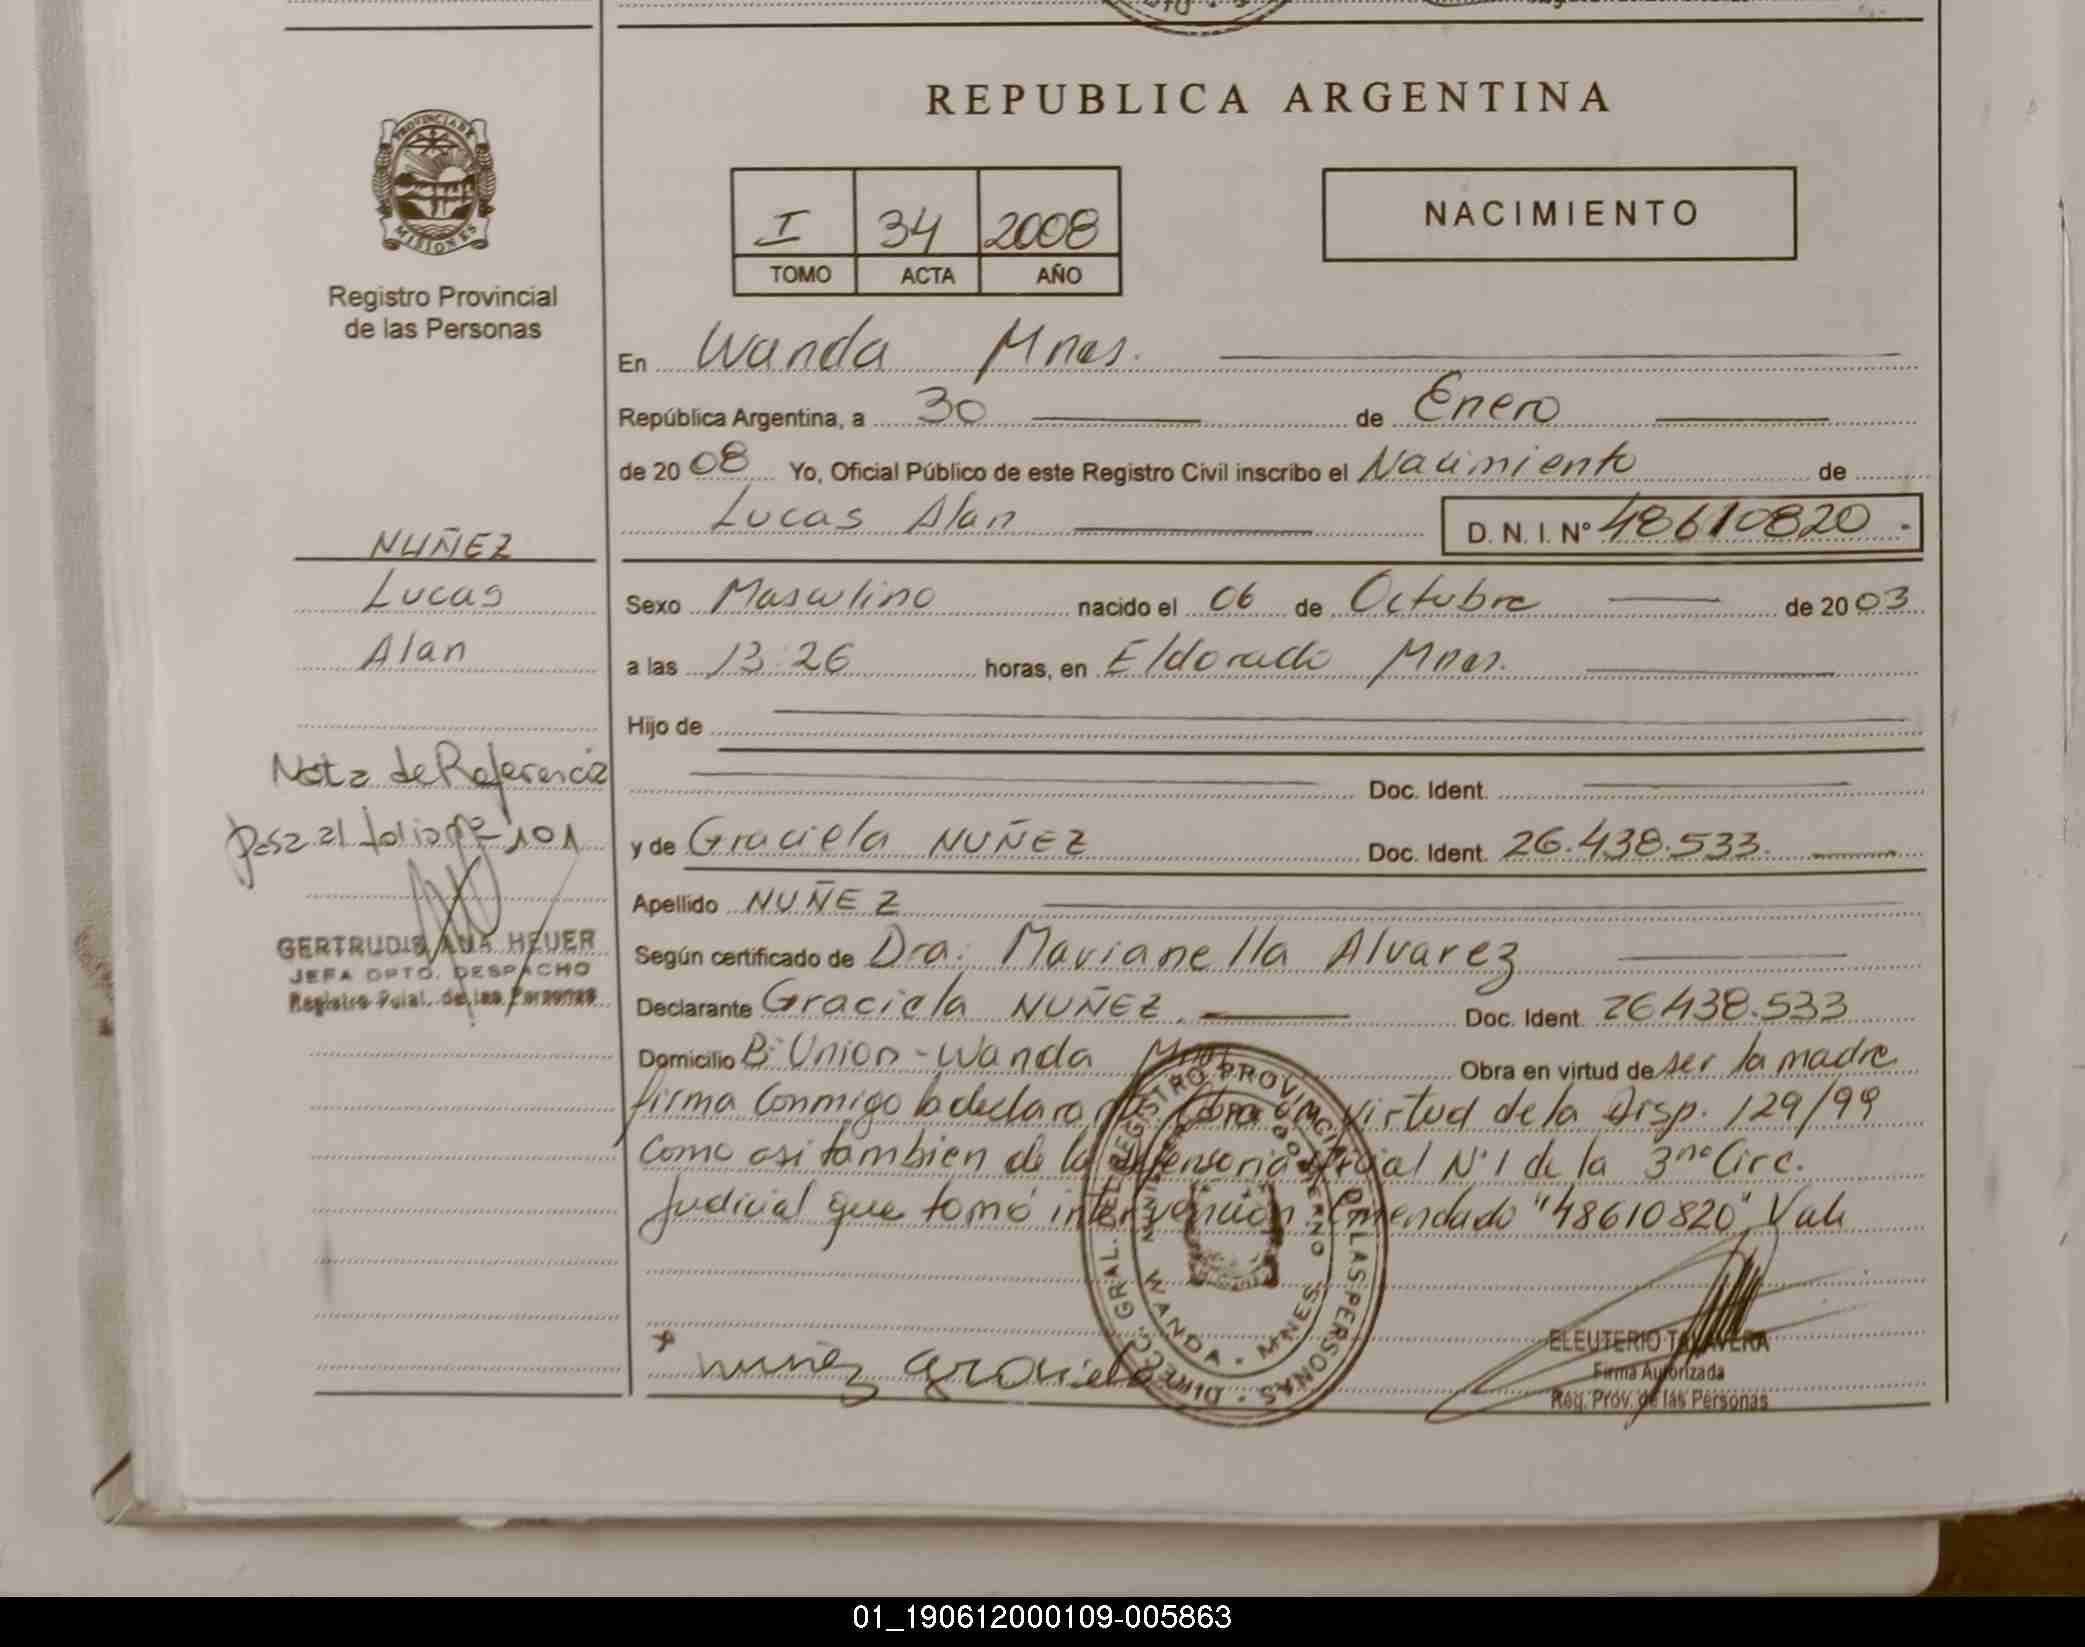 REPUBLICA ARGENTINA
PROVINCIA DE
MISIONES
Registro Provincial
de las Personas
I 34 2008
TOMO ACTA AÑO
NACIMIENTO
En Wanda Mnes.
República Argentina, a 30 de Enero
de 2008 Yo, Oficial Público de este Registro Civil inscribo el Nacimiento de
Lucas Alan D. N. I. Nº 48610820.
NUÑEZ
Lucas
Alan
Sexo Masculino nacido el 06 de Octubre de 2003
a las 13:26 horas, en Eldorado Mnes.
Hijo de
Doc. Ident.
Nota de Referencia
pasa al folio nº 101
y de Graciela NUÑEZ Doc. Ident. 26.438.533.
Apellido NUÑEZ
GERTRUDIS ANA HEUER
JEFA DPTO. DESPACHO
Registro Pcial. de las Personas
Según certificado de Dra. Marianella Alvarez
Declarante Graciela NUÑEZ. Doc. Ident. 26438.533
Domicilio Bº Union - Wanda Mnes Obra en virtud de ser la madre
firma conmigo la declarante. Obra en virtud de la Disp. 129/99
Como asi tambien de la Defensoria Oficial Nº 1 de la 3ra Circ.
Judicial que tomó intervencion. Enmendado "48610820" Vale
DIRECC. GRAL. DEL REGISTRO PROVINCIAL DE LAS PERSONAS
MINISTERIO DE GOBIERNO
WANDA - MNES.
* nuñez graciela
ELEUTERIO TALAVERA
Firma Autorizada
Reg. Prov. de las Personas
01_190612000109-005863